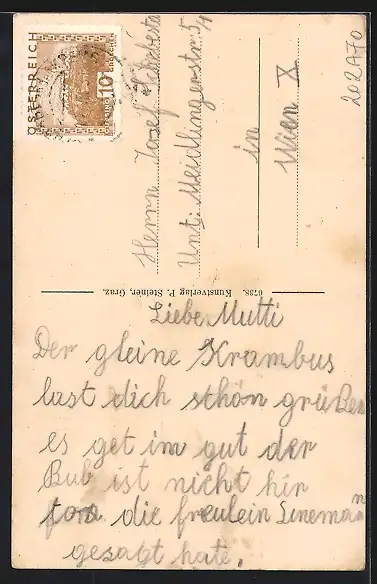 ÖSTERREICH
10
202A70
Herrn Josef
Unt: Meidlingerstr. 5/4
in
Wien X
6738. Kunstverlag P. Steiner, Graz.
Liebe Mutti
Der gleine Krambus
last dich schön grüßen
es get im gut der
Bub ist nicht hir
die freulein Lineman
gesagt hate.